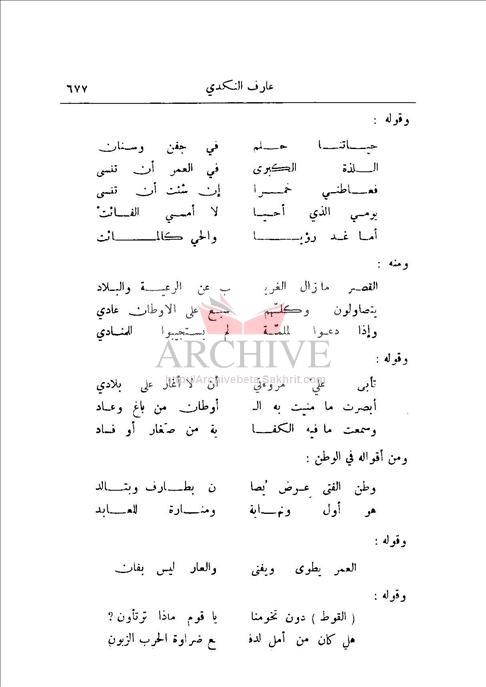 عارف النكدي ٦٧٧
وقوله :
حياتنا حلم في جفن وسنان
اللذة الكبرى في العمر أن تنسى
فعاطني خمرا إن شئت أن تنسى
يومي الذي أحيا لا أمسي الفائت
أما غد رؤيا والحي كالمائت
ومنه :
القصر مازال الغريـ ـب عن الرعية والبلاد
يتصاولون وكلهم سبع على الاوطان عادي
وإذا دعوا لملمة لم يستجيبوا للمنادي
ARCHIVE
http://Archivebeta.Sakhrit.com
وقوله :
تأبى علي مروءتي أن لا أغار على بلادي
أبصرت ما منيت به الـ أوطان من باغ وعاد
وسمعت مافيه الكفا ية من صغار أو فساد
ومن أقواله في الوطن :
وطن الفتى عرض يصا ن بطارف وبتالد
هو أول ونهاية ومنارة للعابد
وقوله :
العمر يطوى ويفنى والعار ليس بفان
وقوله :
( القوط ) دون تخومنا يا قوم ماذا ترتأون ؟
هل كان من أمل لدفـ ـع ضراوة الحرب الزبون